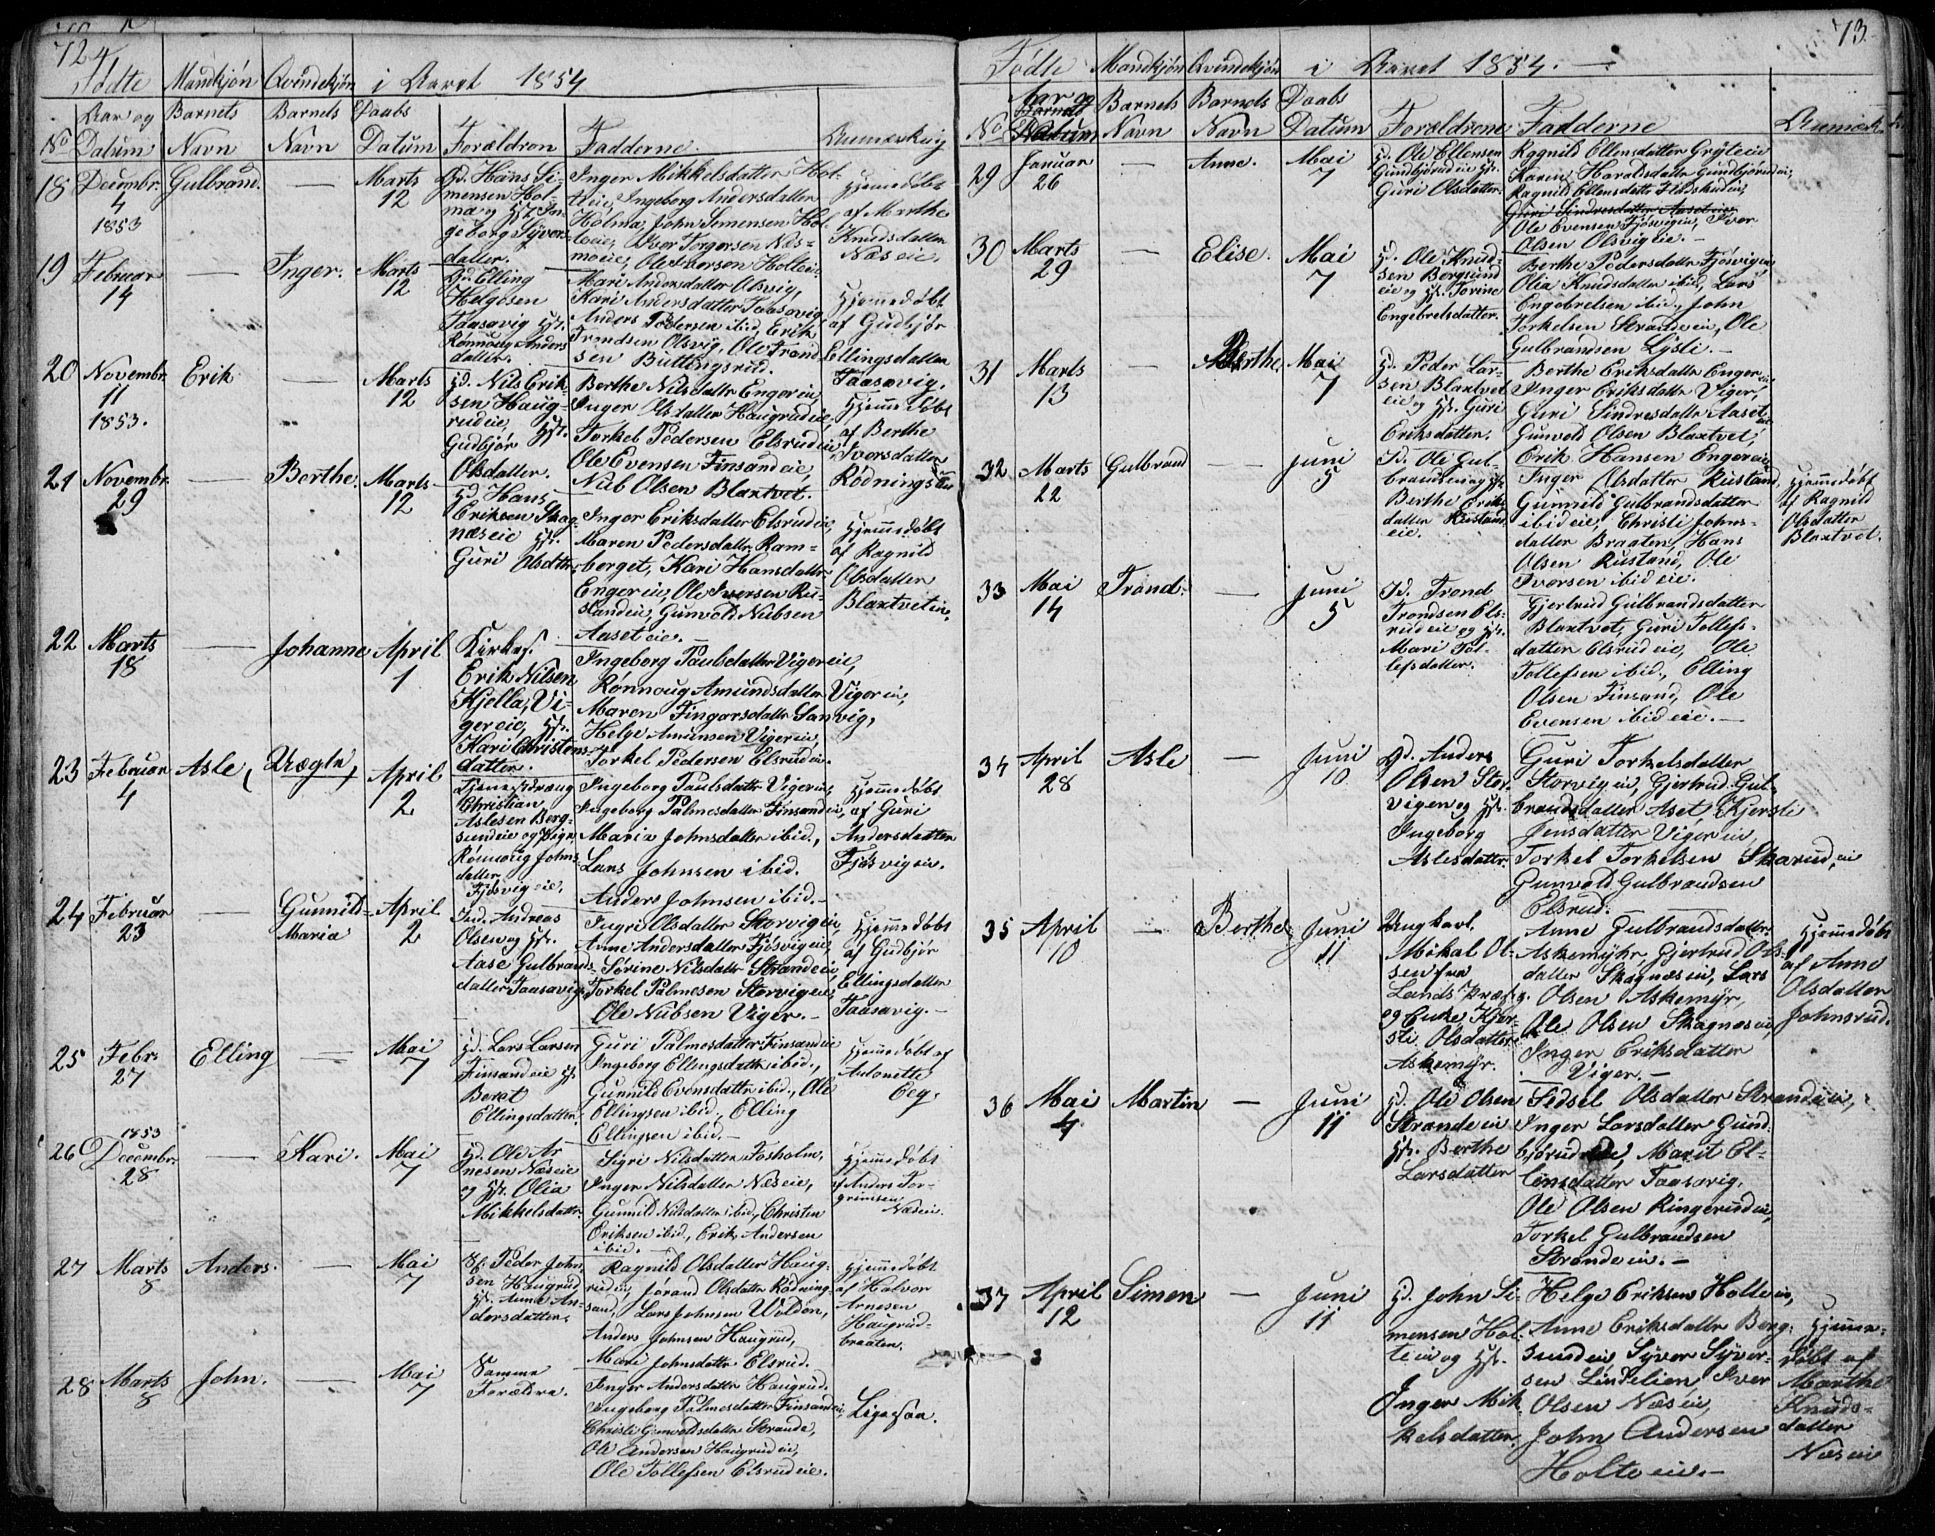 72
Fødte Mandkjøn Qvindekjøn i Aaret 1854
No Aar og Datum Barnets Navn Barnets Navn Daabs Datum Forældren Fadderne Anmerkning
18 Decembr. 4 1853 Gulbrand. — Marts 12
Gd. Hans Si-
mensen Hol-
ma og Hst. In-
geborg Syvers-
datter.
Inger Mikkelsdatter Hol-
teie, Ingeborg Andersdatter
Holma, John Simensen Hol-
teie, Iver Torgersen Næs-
moeie, Ole Iversen Holteie
Hjemmedøbt
af Marthe
Knudsdatter
Næseie.
19 Februar 14 — Inger. Marts 12
Gd. Elling
Helgesen
Taasavig Hst.
Rønnoug Anders
datter.
Mari Andersdatter Olsvig,
Kari Andersdatter Taasavig
Anders Pedersen ibid, Erik
Trondsen Olsvig, Ole Trond-
sen Buttingsrud.
Hjemmedøbt
af Gudbjør
Ellingsdatter
Taasavig.
20 Novembr. 11 1853. Erik — Marts 12
Hd. Nils Erik-
sen Haug-
rudeie, Hst.
Gudbjør
Olsdatter.
Berthe Nilsdatter Engereie,
Inger Olsdatter Haugrudeie,
Torkel Pedersen Elsrudeie
Ole Evensen Finsandeie,
Nub Olsen Blaxtvet.
Hjemmedøbt
af Berthe
Iversdatter
Rødningsand
21 Novembr. 29 — Berthe. Marts 12
Hd. Hans
Eriksen Skag-
næseie Hst.
Guri Olsdttr.
Inger Eriksdatter Elsrudeie
Maren Pedersdattr Ram-
berget, Kari Hansdatter
Engereie, Ole Iversen Ru-
standeie, Gunvold Nubsen
Aaseteie. —
Hjemmedøbt
af Ragnild
Olsdatter
Blaxtveteie.
22 Marts 18 — Johanne April 1
Kirkes.
Erik Nilsen
Kjella, Vi-
gereie, Hst.
Kari Christens-
datter.
Ingeborg Paulsdatter Vigereie,
Rønnoug Amundsdatter Vigereie,
Maren Fingarsdatter Sanvig,
Helge Amunsen Vigereie,
Torkel Pedersen Elsrudeie.
23 Februar 4 Asle, (Uægte) April 2
Tjenestdreng
Christian
Aslesen Berg-
sundeie og Pige
Rønnoug Johns-
datter
Fjøsvigeie,
Ingeborg Paulsdattr Vigereie,
Ingeborg Palmesdatter Finsandeie,
Maria Johnsdatter ibid.,
Lars Johnsen ibid.
Anders Johnsen ibid. —
Hjemmedøbt
af Guri
Andersdatter
Fjøsvigeie.
24 Februar 23 — Gunnild Maria April 2
Ind. Andreas
Olsen og Hst.
Aase Gulbrands-
datter Taasavig.
Ingri Olsdatter Storvigeie
Anne Andersdatter Fjøsvigeie,
Sørine Nilsdattr Strandeeie
Torkel Palmesen Storvigeie,
Ole Nubsen Viger. —
Hjemmedøbt
af Gudbjør
Ellingsdatter
Taasavig. —
25 Febr. 27 Elling — Mai 7
Hd. Lars Larsen
Finsandeie Hst.
Beret
Ellingsdatter.
Guri Palmesdatter Finsandeie
Ingeborg Ellingsdattr ibid.,
Gunnild Evensdatter ibid., Ole
Ellingsen ibid., Elling
Ellingsen ibid. —
Hjemmedøbt af
Antonette
Eeg.
26 1853 Decembr. 28 — Kari. Mai 7
Hd. Ole Ar
nesen Næseie
og Hst. Olia
Mikkelsdatter.
Sigri Nilsdatter Fosholm,
Inger Nilsdatter Næseie,
Gunnild Nilsdatter ibid., Christen
Eriksen ibid., Erik Andersen
ibid. —
Hjemmedøbt
af Anders Tor-
grimsen
Næseie.
27 Marts 8 Anders. — Mai 7
Hd. Peder John-
sen Haugrud
Hst. Anne An-
dersdatter.
Ragnild Olsdatter Haug-
rudeie, Jørand Olsdatter Rødning-
sand, Lars Johnsen Volden,
Anders Johnsen Haugrud,
Mari Johnsdattr Elsrud.
Hjemmedøbt
af Halvor
Arnesen
Haugrud-
braaten.
28 Marts 8 John. — Mai 7
Samme
Forældre.
Inger Andersdatter Haugrud.
Ingeborg Palmesdatter Finsandeie,
Christi Gunvoldsdatter Strande,
Ole Andersen Haugrudeie,
Ole Tollefsen Elsrudeie.
Ligesaa.
73.
Fødte Mandkjøn Qvindekjøn i Aaret 1854. —
No Aar og Datum Barnets Navn Barnets Navn Daabs Datum Forældrene Fadderne Anmerk.
29 Januar 26 — Anne. Mai 7
Hd. Ole Ellensen
Gundbjørudeie Hst.
Guri Olsdatter.
Ragnild Ellensdatter Grøteie
Karen Haraldsdatter Gundbjørudeie,
Ragnild Ellensdattr
Guri Sindresdatter Aaseteie
Ole Evensen Fjøsvigeie, Iver
Olsen Olsvigeie. —
30 Marts 29 — Elise. Mai 7
Hd. Ole Knud-
sen Bergsund
eie og Hst. Torine
Engebretsdatter.
Berthe Pedersdatter Fjøsvigen
Olia Knudsdatter ibid, Lars
Engebretsen ibid., John
Torkelsen Strandeeie, Ole
Gulbrandsen Lysli. —
31 Marts 13 — Berthe, Mai 7
Hd. Peder Lar-
sen Blaxtvet
eie og Hst. Guri
Eriksdatter.
Berthe Eriksdatter Engereie
Inger Eriksdatter Viger,
Guri Sindresdattr Aaset
eie
Gunvold Olsen Blaxtvet,
Erik Hansen Engereie.
32 Marts 22 Gulbrand — Juni 5
Id. Ole Gul-
brandsen og Hst.
Berthe Eriks-
datter Rustand
eie.
Inger Olsdatter Rustand,
Gunnild Gulbrandsdatter
ibideie, Christi Johns-
datter Braaten, Hans
Olsen Rustand, Ole
Iversen ibideie.
Hjemmedøbt
af Ragnild
Olsdatter
Blaxtvet.
33 Mai 14 Trond. — Juni 5
Id. Trond
Trondsen Els-
rudeie og Hst.
Mari Tol-
lefsdatter.
Gjertrud Gulbrandsdatter
Blaxtvet, Guri Tollefs-
datter Elsrudeie, Ole
Tollefsen ibid., Elling
Olsen Finsand, Ole
Evensen ibideie. —
34 April 28 Asle — Juni 10
Gd. Anders
Olsen Stor-
vigen og Hst.
Ingeborg
Aslesdatter.
Guri Torkelsdatter
Storvigeie, Gjertrud Gul-
brandsdatter Aset, Kjersti
Jensdatter Vigereie,
Torkel Torkelsen Skarud,eie
Gunvold Gulbrandsen
Elsrud.
35 April 10 — Berthe Juni 11
Ungkarl.
Mikal Ol-
sen fra
Lands Præstg.
og Enke Kjer-
sti Olsdatter
Askemyr.
Anne Gulbrandsdatter
Askemyhr, Gjertrud Ols-
datter Skagnæseie, Lars
Olsen Askemyr,
Ole Olsen Skagnæseie
Inger Eriksdatter
Viger. —
Hjemmedøbt
af Anne
Olsdatter
Johnsrud.
36 Mai 4 Martin — Juni 11
Hd. Ole Olsen
Strandeeie
Hst. Berthe
Larsdatter
Sidsel Olsdatter Strandeeie,
Inger Larsdatter Gund-
bjørudeie, Marit El-
lensdatter Taasavig,
Ole Olsen Ringerudeie,
Torkel Gulbrandsen
Strandeeie. —
37 April 12 Simen — Juni 11
Hd. John Si-
mensen Hol-
teie og Hst.
Inger Mik-
kelsdatter.
Helge Eriksen Holteeie,
Anne Eriksdatter Berg-
sundeie Syver Syver-
sen Lindelien Iver
Olsen Næseie,
John Andersen
Holteeie. —
Hjemme-
døbt af
Marthe
Knuds-
datter
Næseie